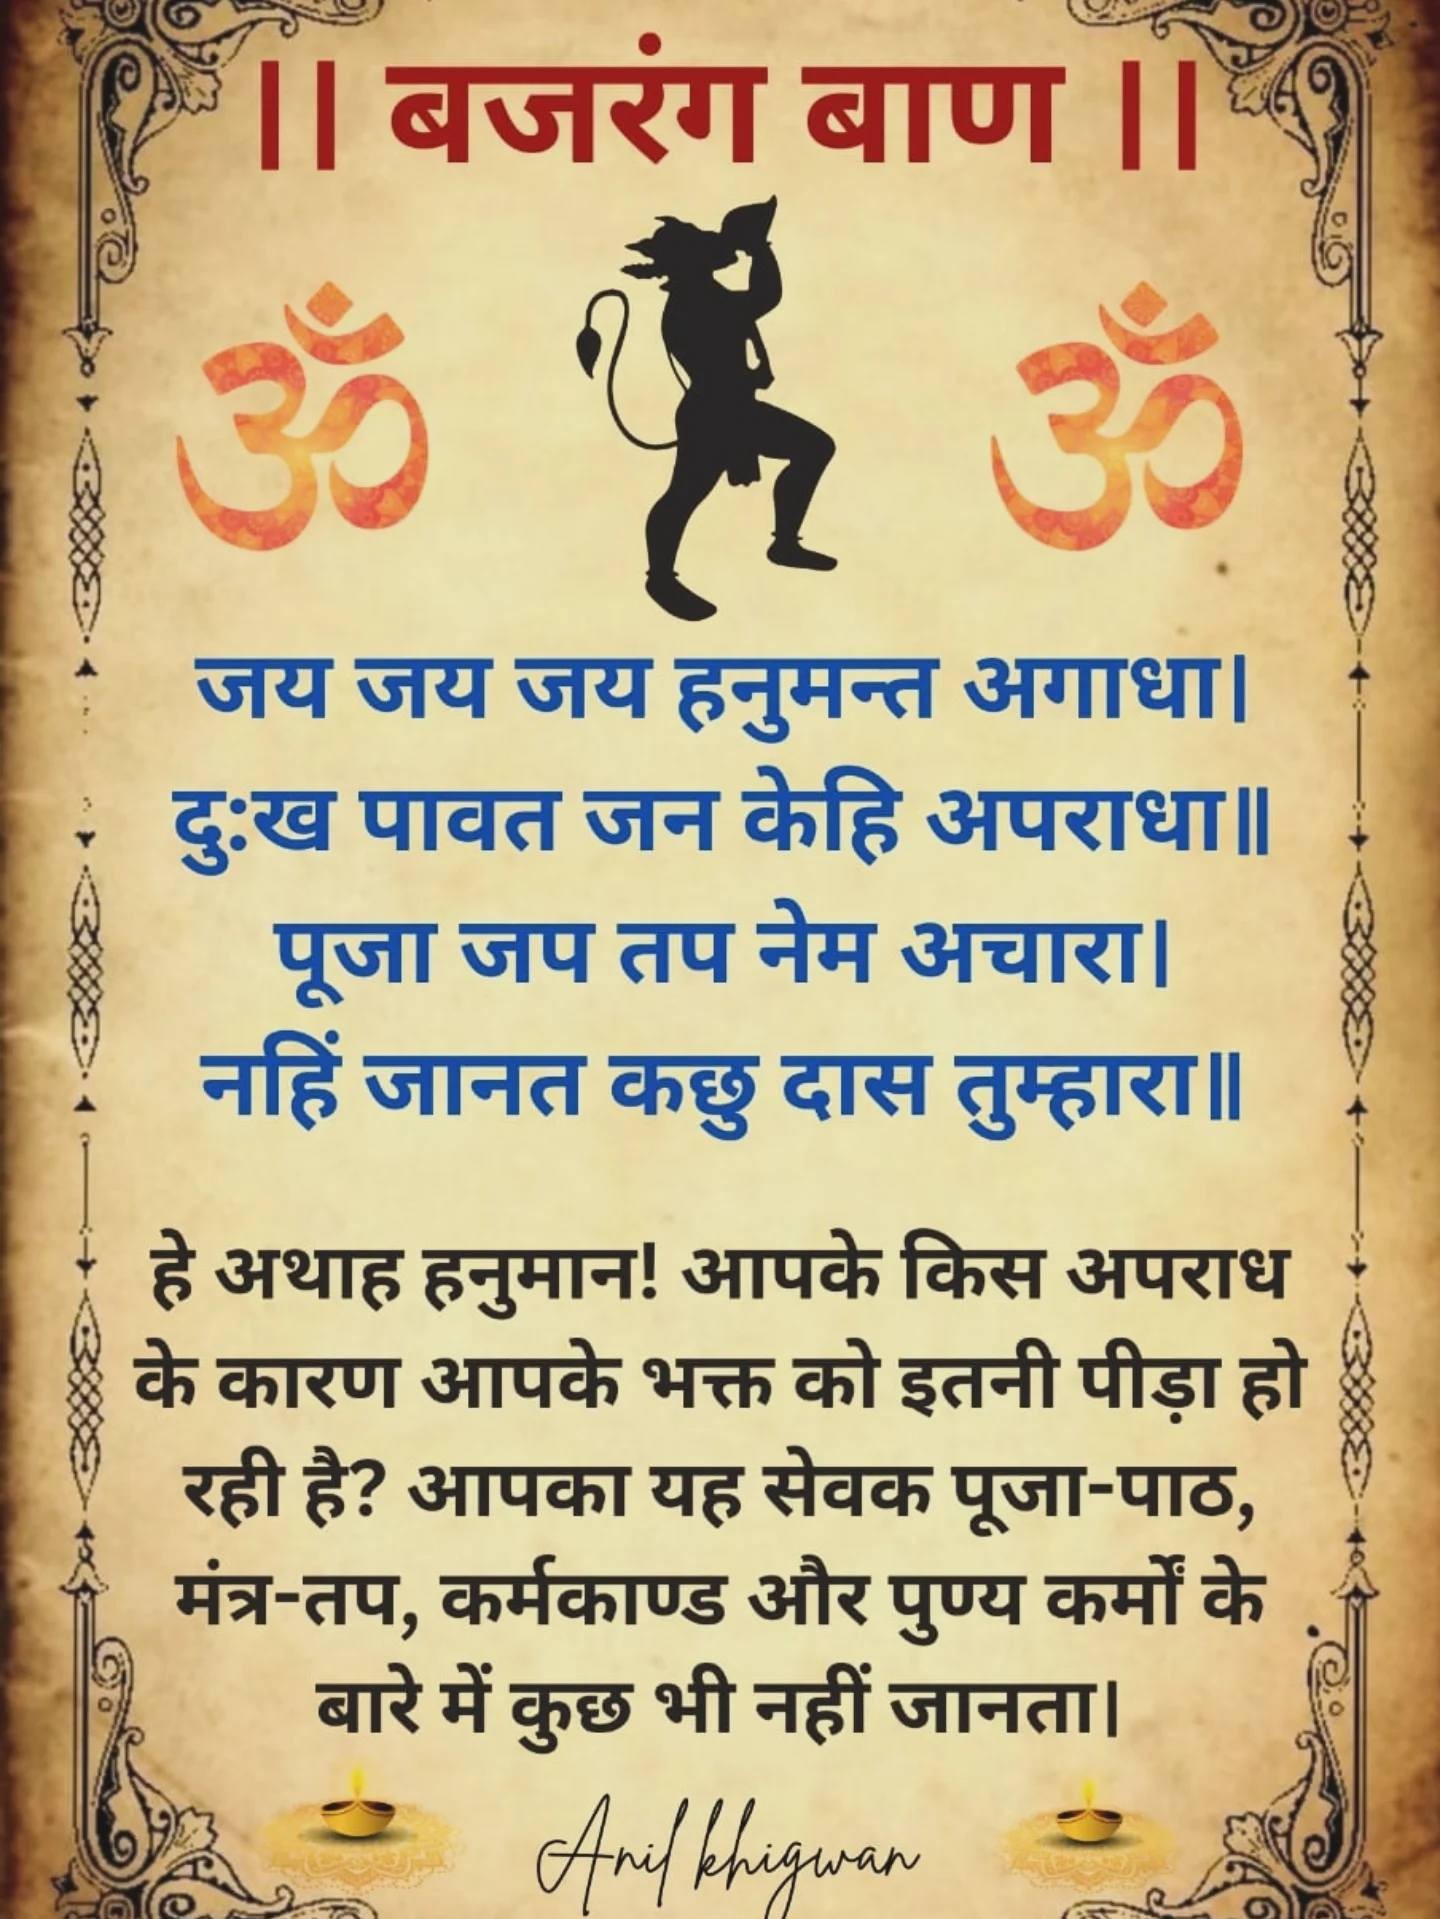 || बजरंग बाण ||
ॐ ॐ
जय जय जय हनुमन्त अगाधा।
दुःख पावत जन केहि अपराधा॥
पूजा जप तप नेम अचारा।
नहिं जानत कछु दास तुम्हारा॥
हे अथाह हनुमान! आपके किस अपराध
के कारण आपके भक्त को इतनी पीड़ा हो
रही है? आपका यह सेवक पूजा-पाठ,
मंत्र-तप, कर्मकाण्ड और पुण्य कर्मों के
बारे में कुछ भी नहीं जानता।
Anil khigwan